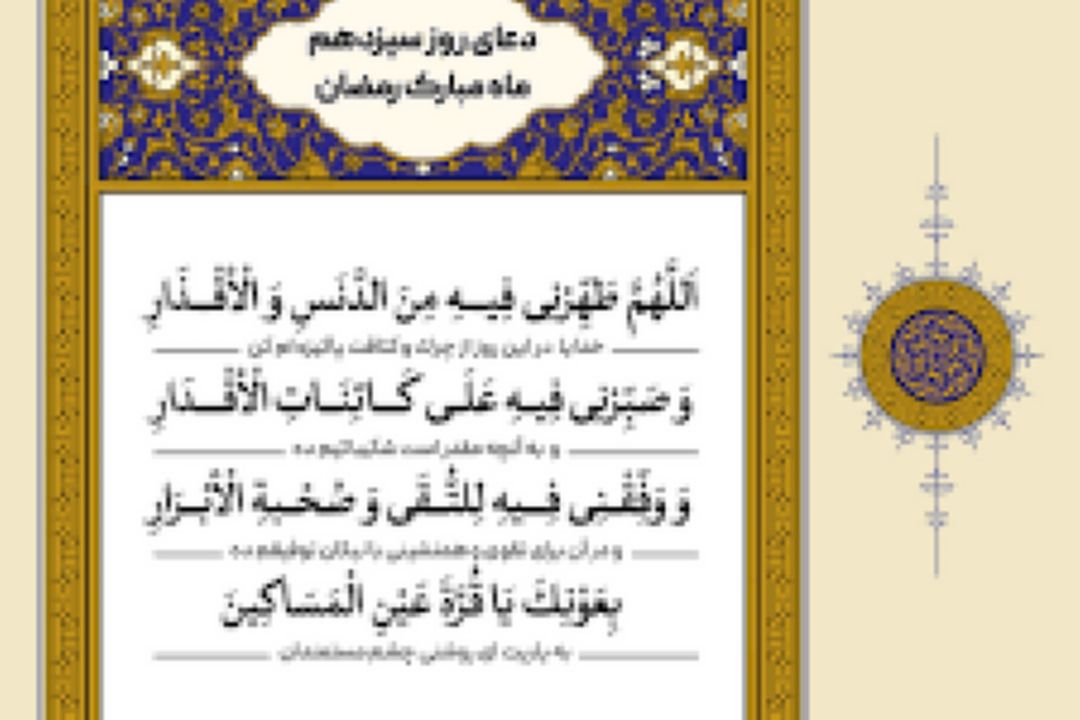 دعای روز سیزدهم
ماه مبارک رمضان
اَللّهُمَّ طَهِّرْنِی فِیـهِ مِنَ الدَّنَسِ وَ الْأَقْـذَارِ
خدایا در این روز از چرک و کثافت پاکیزه‌ام کن
وَ صَبِّرْنِی فِیهِ عَلَی کَـائِنَـاتِ الْأَقْـدَارِ
و به آنچه مقدر است شکیبائیم ده
وَ وَفِّقْنِی فِـیهِ لِلتُّـقَی وَ صُحْـبَةِ الْأَبْـرَارِ
و در آن برای تقوی و همنشینی با نیکان توفیقم ده
بِعَوْنِكَ یَا قُرَّةَ عَیْنِ الْمَسَاکِینَ
به یاریت ای روشنی چشم مستمندان